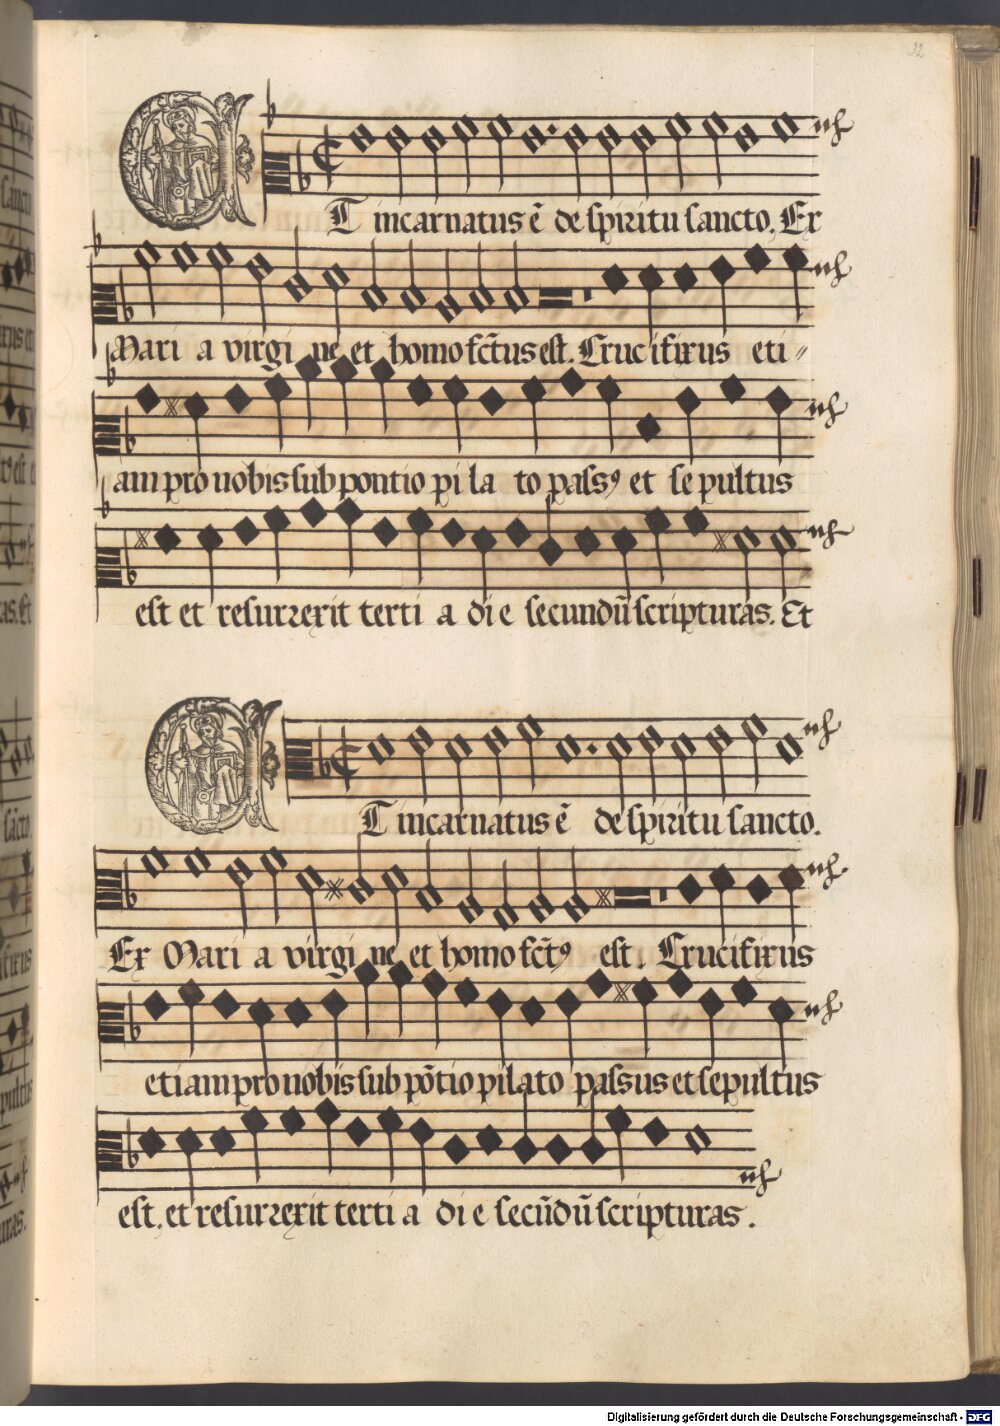 32
ET incarnatus ē de spiritu sancto. Ex
Mari a virgi ne et homo fct̄us est. Crucifixus eti⸗
am pro nobis sub pontio pi la to passꝰ et se pultus
est et resurrexit terti a di e secundū scripturas. Et
ET incarnatus ē de spiritu sancto.
Ex Mari a virgi ne et homo fct̄ꝰ est. Crucifixus
etiam pro nobis sub pōtio pilato passus et sepultus
est. et resurrexit terti a di e secūdū scripturas.
Digitalisierung gefördert durch die Deutsche Forschungsgemeinschaft - DFG